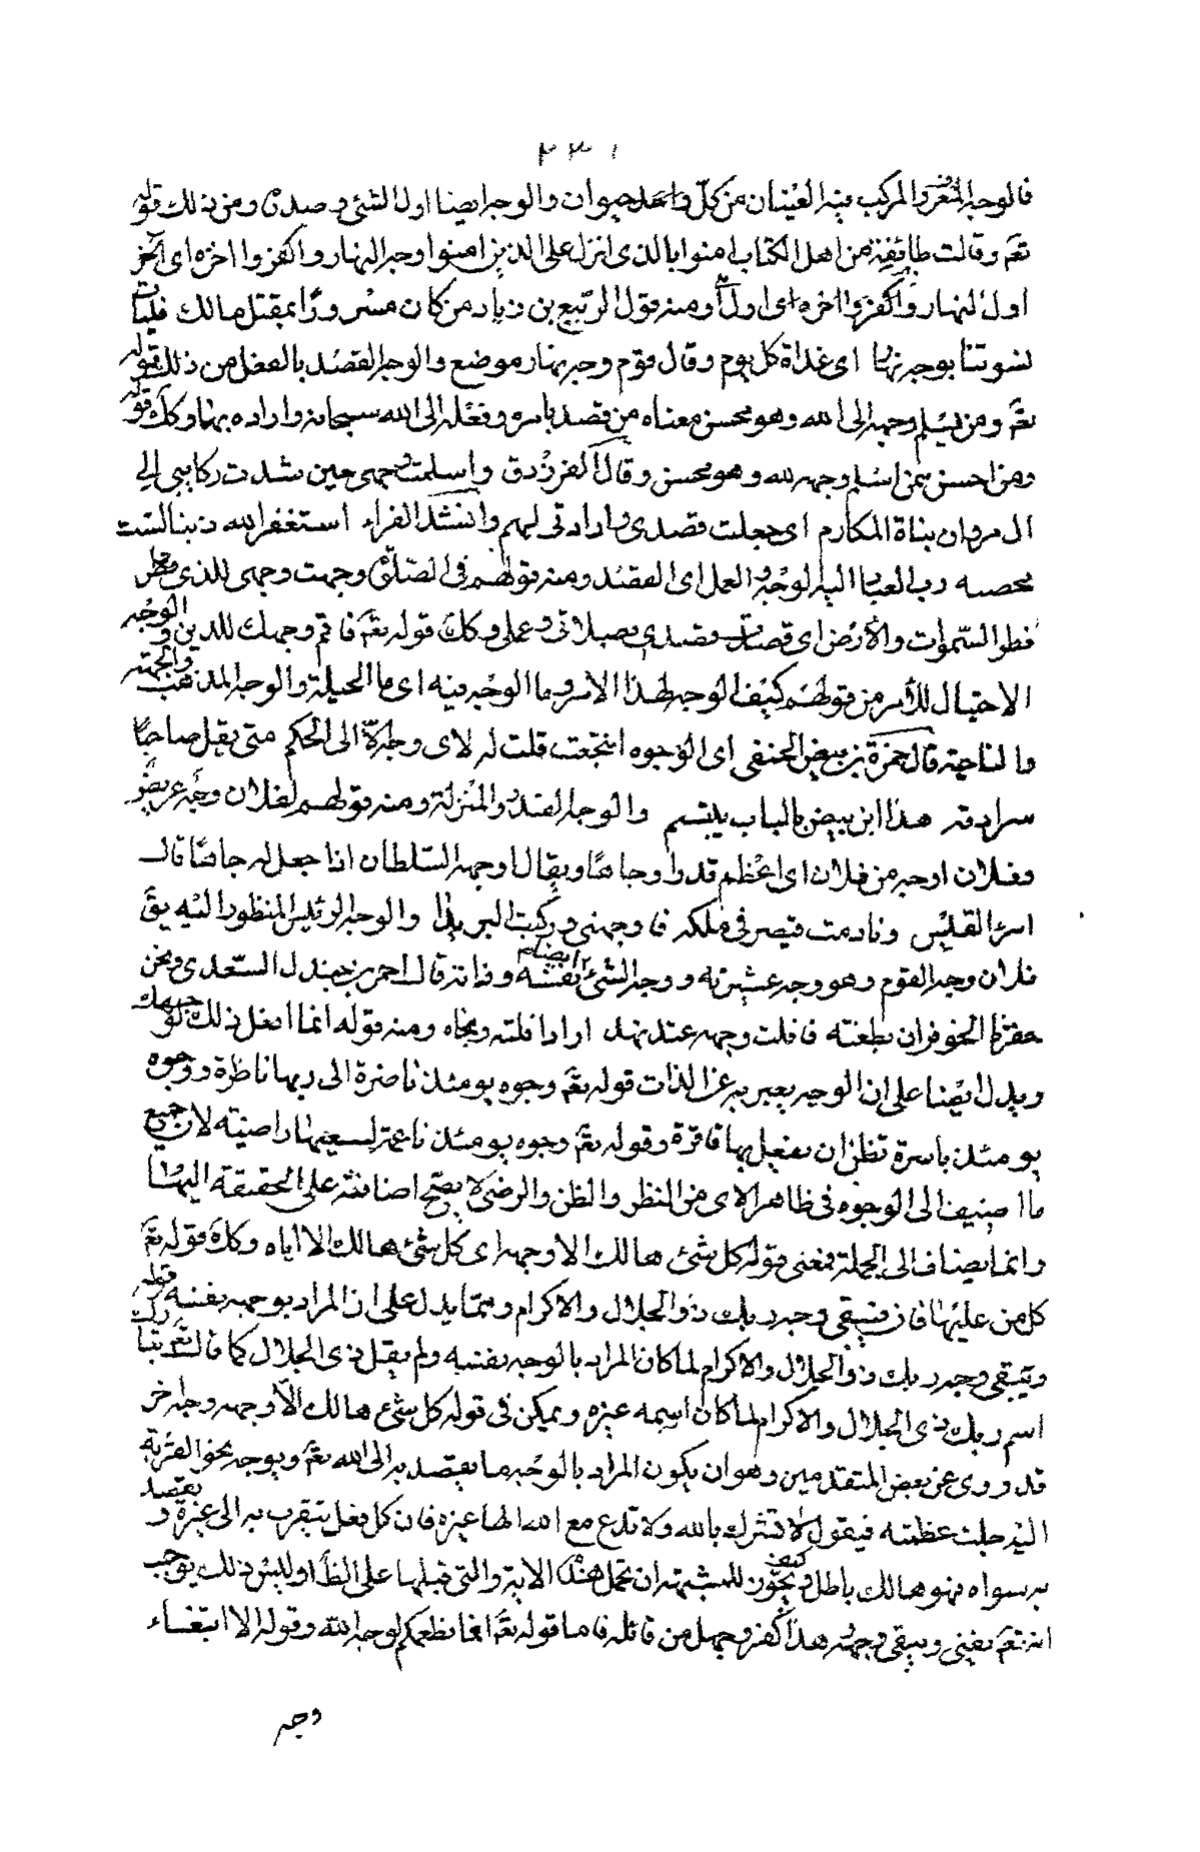 ٢٣١
فالوجه المعروف المركب فيه العينان من كل واحد حيوان والوجه ايضا اول الشئ وصدره ومن ذلك قوله
تعَ وقالت طائفة من اهل الكتاب امنوا بالذى انزل على الذين امنوا وجه النهار واكفروا اخره اى آخر
اول النهار واكفروا اخره اى اول ومنه قول الرّبيع بن زياد من كان مسرورًا بمقتل مالك فليات
نسوتنا بوجه نهار اى غداة كل يوم وقال قوم وجه نهار موضع والوجه القصد بالفعل من ذلك قوله
تعَ ومن يسلم وجهه الى الله وهو محسن معناه من قصد بامره وفعله الى الله سبحانه واراده بهما وكك قوله
ومن احسن ممن اسلم وجهه لله وهو محسن وقال الفرزدق واسلمت وجهى حين شدت ركايبى الى
ال مروان بناة المكارم اى جعلت قصدى وارادتى لهم وانشد الفراء استغفر الله ذنبا لست
محصيه رب العباد اليه الوجه والعمل اى القصد ومنه قولهم فى الصّلوة وجهت وجهى للذى فطر
فطر السّموات والأرض اى قصدت قصدى بصلاتى وعملى وكك قوله تعَ فاقم وجهك للدين والوجه
الاحتيال للأمر من قولهم كيف الوجه لهذا الامر وما الوجه فيه اى ما الحيلة والوجه المذهب والجهة
والناحية قال حمزة بن بيض الحنفى اى الوجوه انتجعت قلت له لاى وجه الا الى الحكم متى يقل صاحبا
سرادقه هذا ابن بيض بالباب يبتسم والوجه القدر والمنزلة ومنه قولهم لفلان وجه عريض
وفلان اوجه من فلان اى اعظم قدرا وجاها ويقال اوجهه السّلطان اذا جعل له جاها قال
امرؤ القيس ونادمت قيصر فى ملكه فاوجهنى وركبت البريدا والوجه الرئيس المنظور اليه يقَ
فلان وجه القوم وهو وجه عشيرته ووجه الشئ ايضا نفسه وذاته قال احمر بن جندل السّعدى ونحن
حفزنا الحوفزان بطعنة فافلت وجهه عتد نهد اراد افلته ونجاه ومنه قوله انما افعل ذلك لوجهك
ويدل ايضا على ان الوجه يعبر به عن الذات قوله تعَ وجوه يومئذ ناضرة الى ربها ناظرة ووجوه
يومئذ باسرة تظن ان يفعل بها فاقرة وقوله تعَ وجوه يومئذ ناعمة لسعيها راضية لان جميع
ما اضيف الى الوجوه فى ظاهر الاى من النظر والظن والرضى لا يصّح اضافته على الحقيقة اليها
وانما يضاف الى الجملة فمعنى قوله كل شئ هالك الا وجهه اى كل شئ هالك الا اياه وكك قوله تعَ
كل من عليها فان ويبقى وجه ربك ذو الجلال والاكرام ومما يدل على ان المراد بوجهه نفسه قوله
ويبقى وجه ربك ذو الجلال والاكرام لما كان المراد بالوجه نفسه ولم يقل ذى الجلال كما قال تعَ تبارك
اسم ربك ذى الجلال والاكرام لما كان اسمه غيره ويمكن فى قوله كل شئ هالك الّا وجهه وجه اخر
قد روى عن بعض المتقدمين وهو ان يكون المراد بالوجه ما يقصد به الى الله تعَ ويوجه نحو القربة
اليه جلت عظمته فيقول لا تشرك بالله ولا تدع مع الله الها غيره فان كل فعل يتقرب به الى غيره ويقصد
به سواه فهو هالك باطل وكيف يجوز للمشبهة ان تحمل هذه الاية والتى قبلها على الظاهر اوليس ذلك يوجب
انه تعَ يفنى ويبقى وجهه وهذا كفر وجهل من قائله فاما قوله تعَ انما نطعمكم لوجه الله وقوله الا ابتغاء
وجه